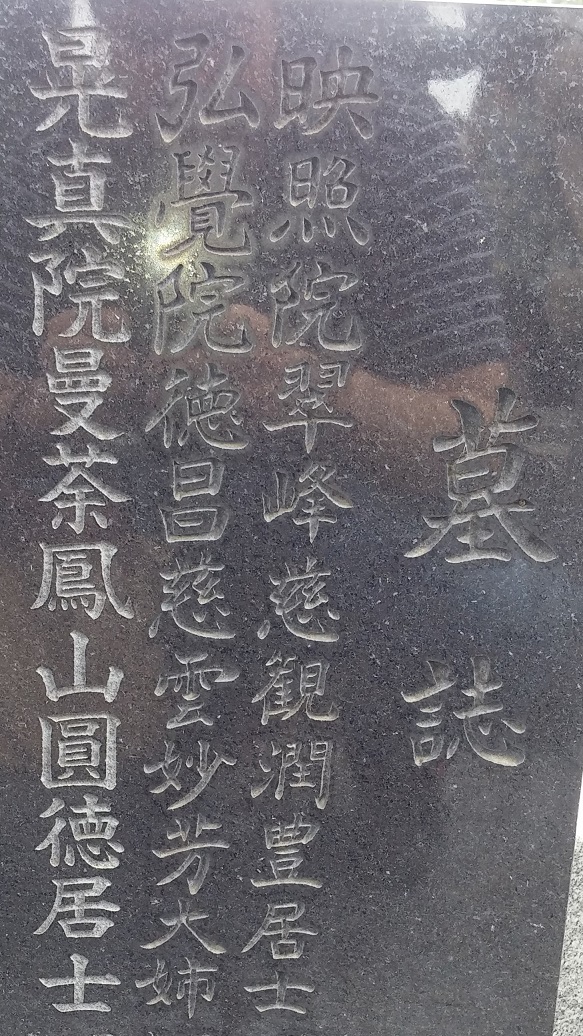 墓誌
映照院翠峰慈観潤豊居士
弘覺院徳昌慈雲妙芳大姉
晃真院曼荼鳳山圓徳居士